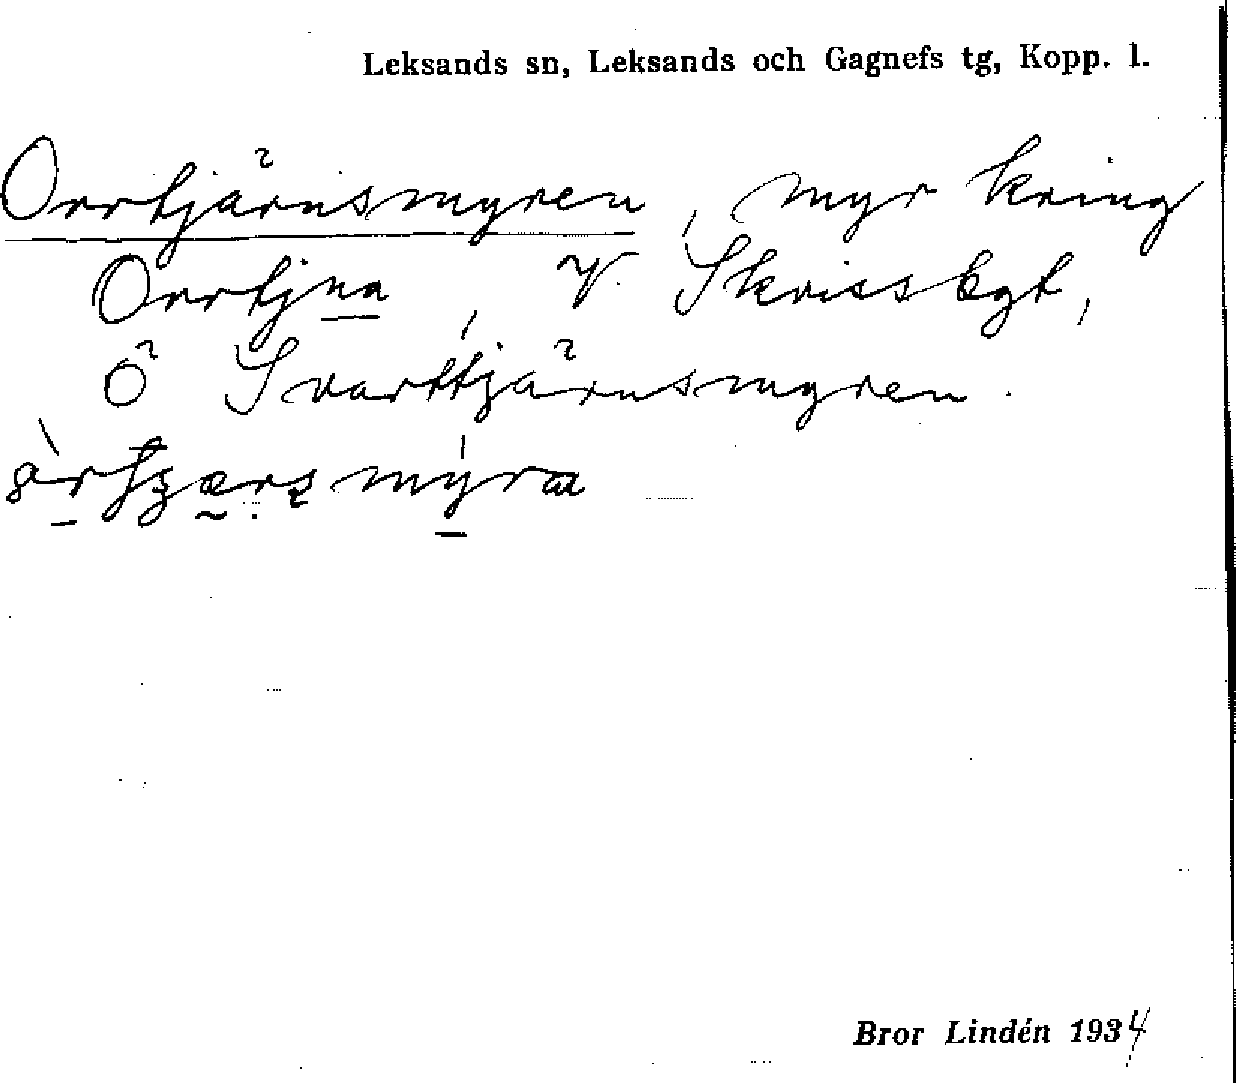 Leksands sn, Leksands och Gagnefs tg, Kopp. l.
Orrtjärnsmyren, myr kring
Orrtjna, V. Skrissbgt,
Ö Svarttjärnsmyren.
Bror Lindén 1934